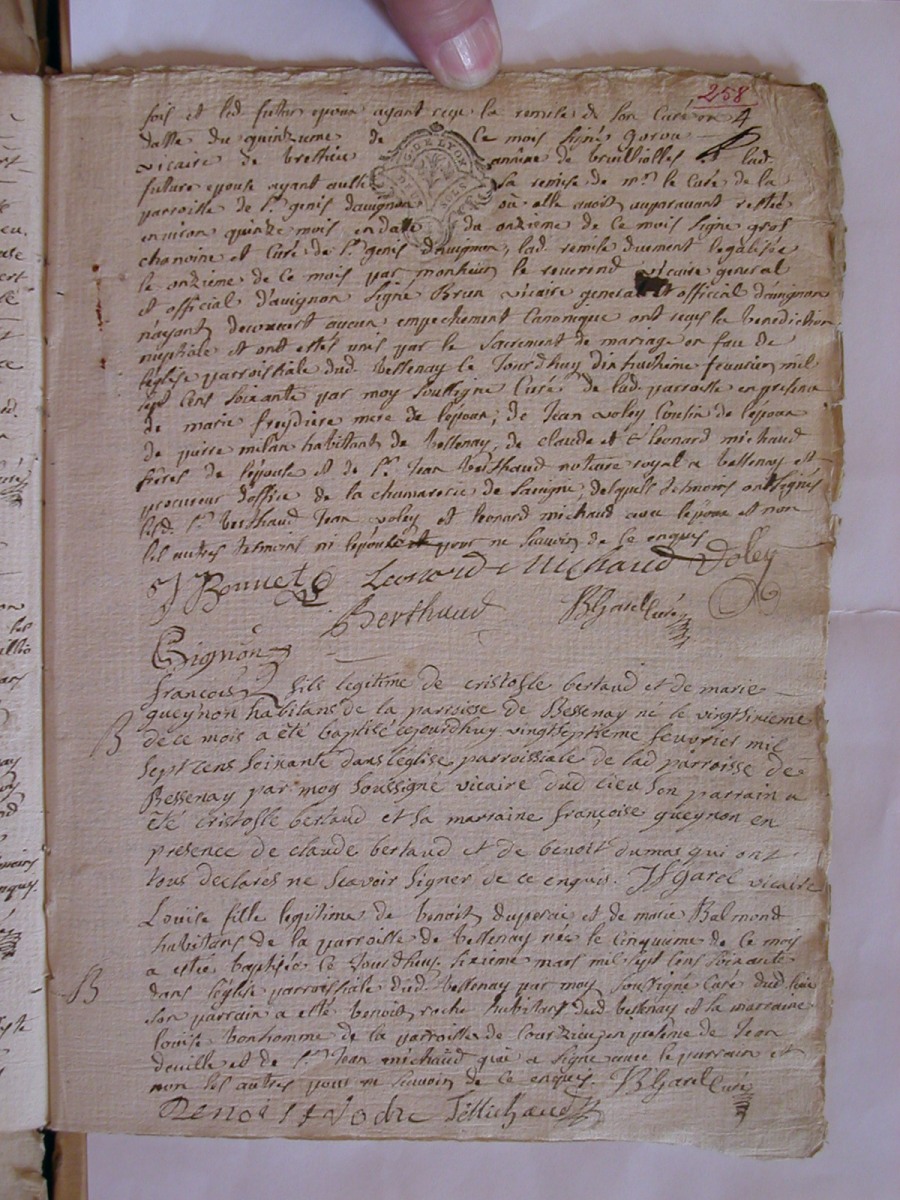 258
fois et led futur epoux ayant reçu la remise de son Curé en
datte du quinzieme de ce mois signé
vicaire de brussieu annexe de brulliolles et lad.
future epouse ayant aussi sa remise de mr. le Curé de la
G. DE LYON
parroisse de st. genis d'avignon ou elle avoit auparavant resté
environ quinze mois en datte du onzieme de ce mois signe gros
chanoine et Curé de st. genis d'avignon, lad. remise duement legalisée
le onzieme de ce mois par monsieur le reverend vicaire general
et official d'avignon signe Brun vicaire general et official d'avignon
n'ayant decouvert aucun empechement Canonique ont reçu la benediction
nuptiale et ont estés unis par le Sacrement de mariage en face de
l'eglise parroissiale dud. Bessenay le Jourdhuy dixhuitieme fevrier mil
sept cens soixante par moy soussigné Curé de lad. parroisse en presence
de marie freydiere mere de l'epoux; de Jean voley Cousin de l'epoux
de pierre milan habitant de Bessenay, de claude et leonard michaud
freres de l'epouse et de sr. Jean Berthaud notaire royal a Bessenay et
procureur d'office de la chamarerie de Savigny, desquels temoins ont signés
lesd. sr. berthaud Jean voley et leonard michaud avec l'epoux et non
les autres temoins ni l'epouse pour ne sçavoir de ce enquis
J Bonnet Leonard Michaud Voley
Berthaud BGarel Curé
Grignon
francois fils legitime de cristofle bertaud et de marie
queynon habitans de la parroisse de Bessenay né le vingtsixieme
B
de ce mois a été baptisé cejourdhuy vingtseptieme fevrier mil
sept cens soixante dans l'eglise parroissiale de lad parroisse de
Bessenay par moy soussigné vicaire dud lieu son parrain a
été cristofle bertaud et sa marraine françoise queynon en
presence de claude bertaud et de benoit dumas qui ont
tous declarés ne scavoir signer de ce enquis. garel vicaire
Louise fille legitime de benoit duperai et de marie Balmond
habitans de la parroisse de bessenay née le cinquieme de ce mois
a estée baptisée ce Jourdhuy sixieme mars mil sept cens soixante
B
dans l'eglise parroissiale dud. bessenay par moy soussigné Curé dud lieu
son parrain a esté benoit roche habitant dud bessenay et sa marraine
louise bonhomme de la parroisse de Courzieu, en presence de Jean
deville et de sr. Jean michaud qui a signe avec le parrain et
non les autres pour ne sçavoir de ce enquis. BGarel Curé
Benoist Michaud